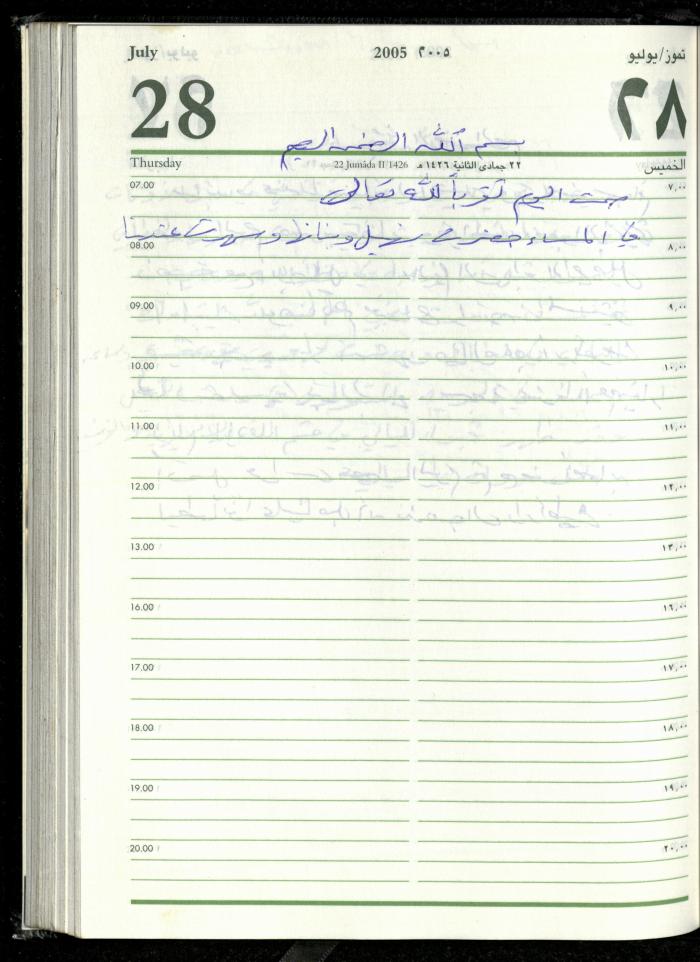 July 2005 ٢٠٠٥ تموز/يوليو
28 ٢٨
بسم الله الرحمن الرحيم
Thursday 22 Jumâda II 1426 ٢٢ جمادى الثانية ١٤٢٦ هـ الخميس
07.00 ٧,٠٠
صمت اليوم تقرباً لله تعالى
في المساء حضرت سهيل وبناتها وسهرت عندنا
08.00 ٨,٠٠
09.00 ٩,٠٠
10.00 ١٠,٠٠
11.00 ١١,٠٠
12.00 ١٢,٠٠
13.00 ١٣,٠٠
16.00 ١٦,٠٠
17.00 ١٧,٠٠
18.00 ١٨,٠٠
19.00 ١٩,٠٠
20.00 ٢٠,٠٠